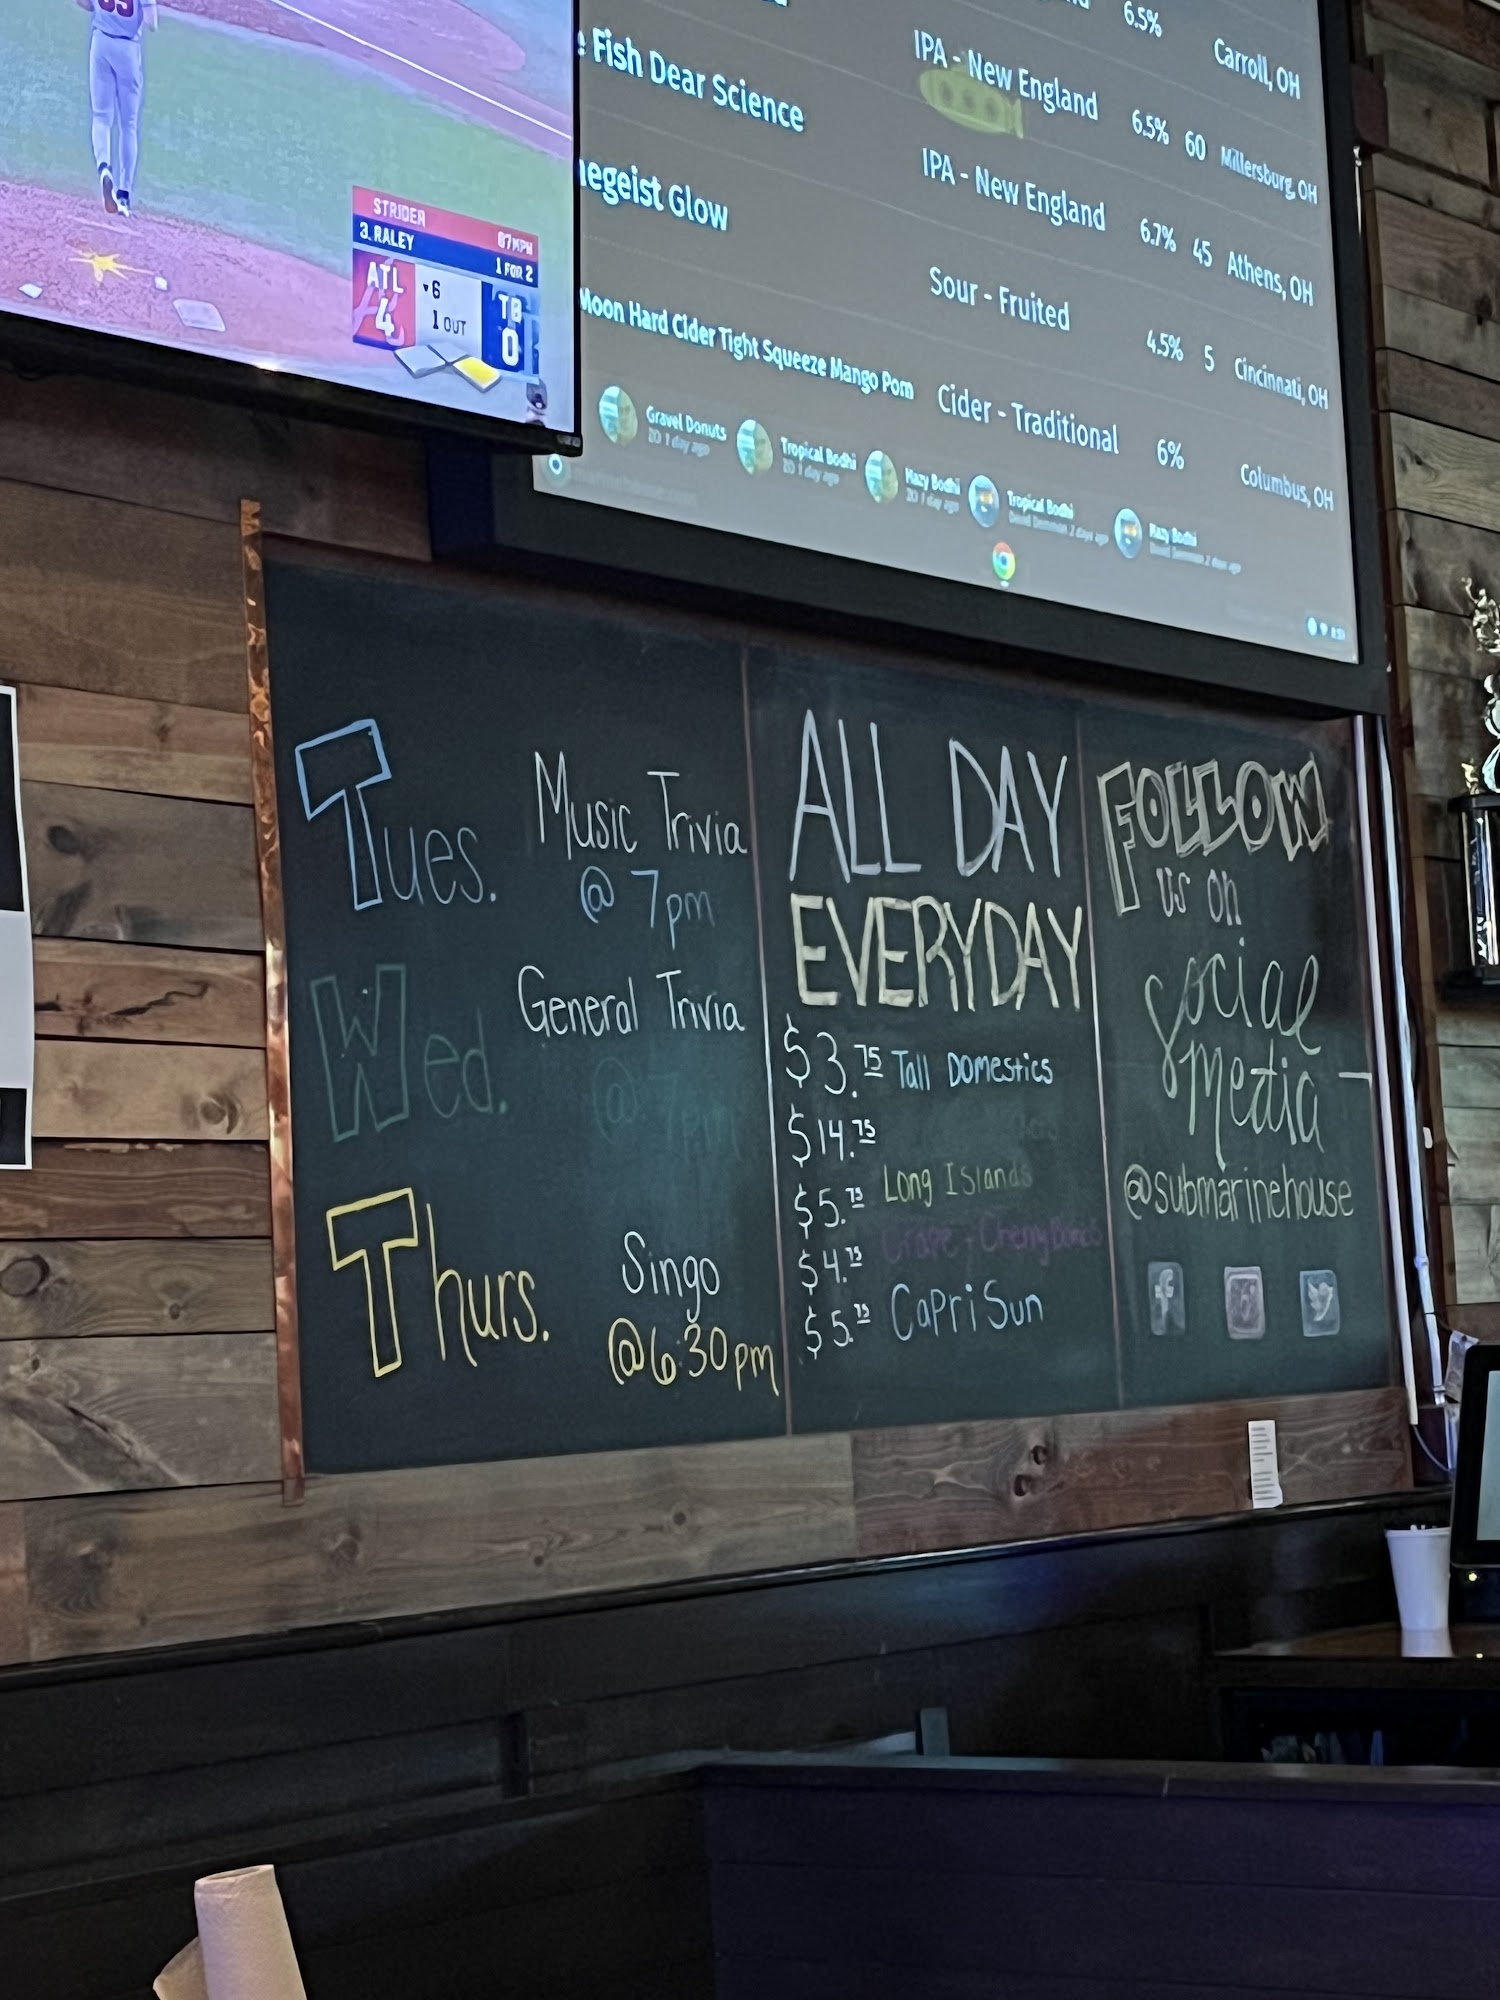 STRIDER 87MPH
3. RALEY 1 FOR 2
ATL 4
▼6
1 OUT
TB 0
6.5% Carroll, OH
Fish Dear Science IPA - New England 6.5% 60 Millersburg, OH
egeist Glow IPA - New England 6.7% 45 Athens, OH
Sour - Fruited 4.5% 5 Cincinnati, OH
Moon Hard Cider Tight Squeeze Mango Pom Cider - Traditional 6% Columbus, OH
Gravel Donuts
1 day ago
Tropical Bodhi
1 day ago
Hazy Bodhi
1 day ago
Tropical Bodhi
2 days ago
Hazy Bodhi
2 days ago
Tues. Music Trivia
@ 7pm
Wed. General Trivia
@ 7pm
Thurs. Singo
@6:30pm
ALL DAY
EVERYDAY
$3.75 Tall Domestics
$14.75
$5.75 Long Islands
$4.75 Grape - Cherry Bombs
$5.75 Capri Sun
FOLLOW
us on
social
media -
@submarinehouse